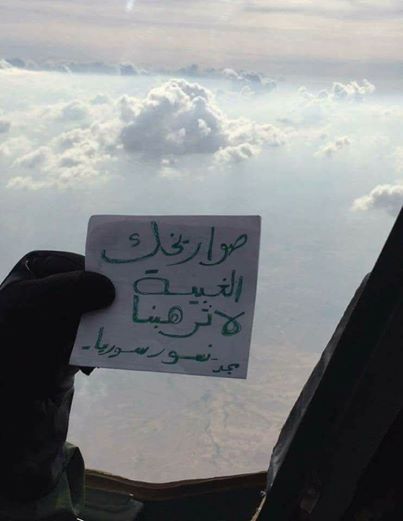 صواريخك
الغبية
لا ترهبنا
- نسور سوريا -
مجد